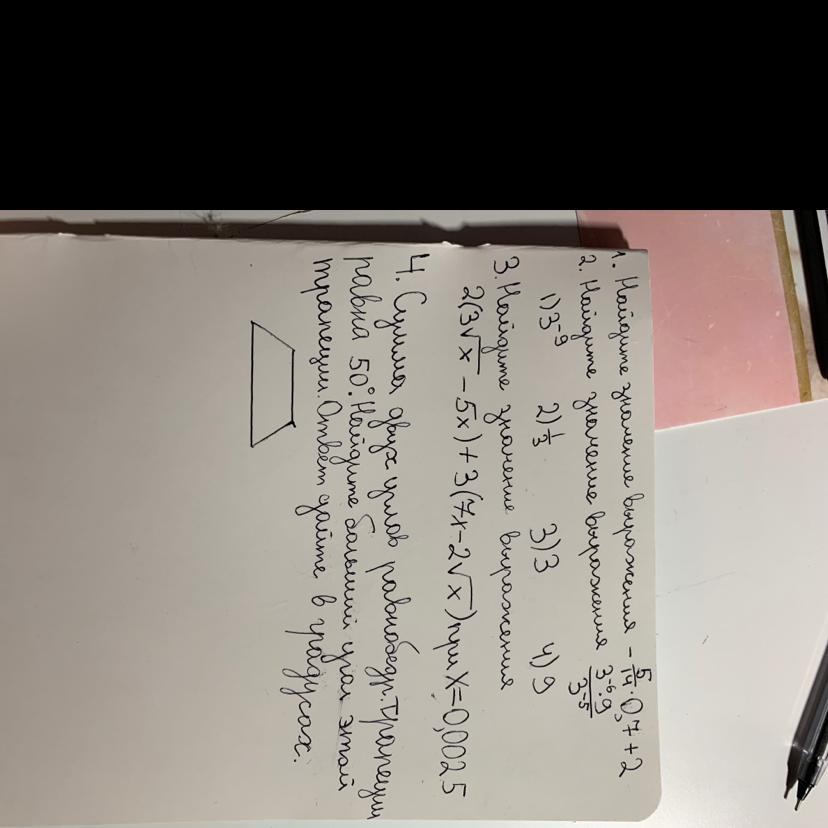 1. Найдите значение выражения - 5/14 · 0,7 + 2
2. Найдите значение выражения 3⁻⁶·9 / 3⁻⁵
1) 3⁻⁹ 2) 1/3 3) 3 4) 9
3. Найдите значение выражения
2(3√x - 5x) + 3(7x - 2√x) при x = 0,0025
4. Сумма двух углов равнобедр. трапеции
равна 50°. Найдите больший угол этой
трапеции. Ответ дайте в градусах.